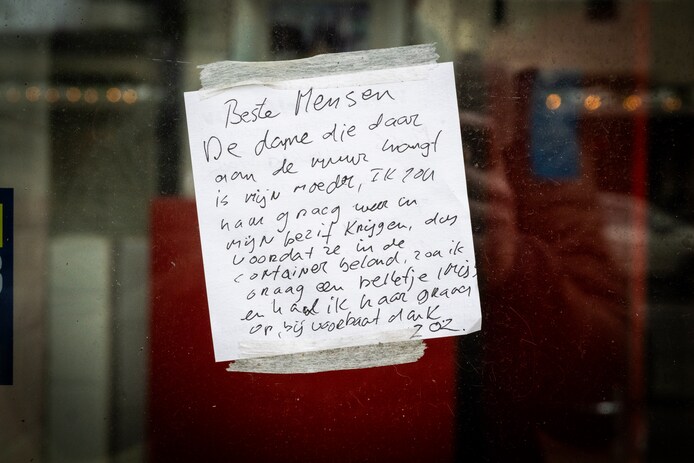 Beste Mensen
De dame die daar
aan de muur hangt
is mijn moeder, Ik zou
haar graag weer in
mijn bezit krijgen, dus
voordat ze in de
container beland, zou ik
graag een belletje krijgen
en haal ik haar graag
op, bij voorbaat dank
ZOZ.